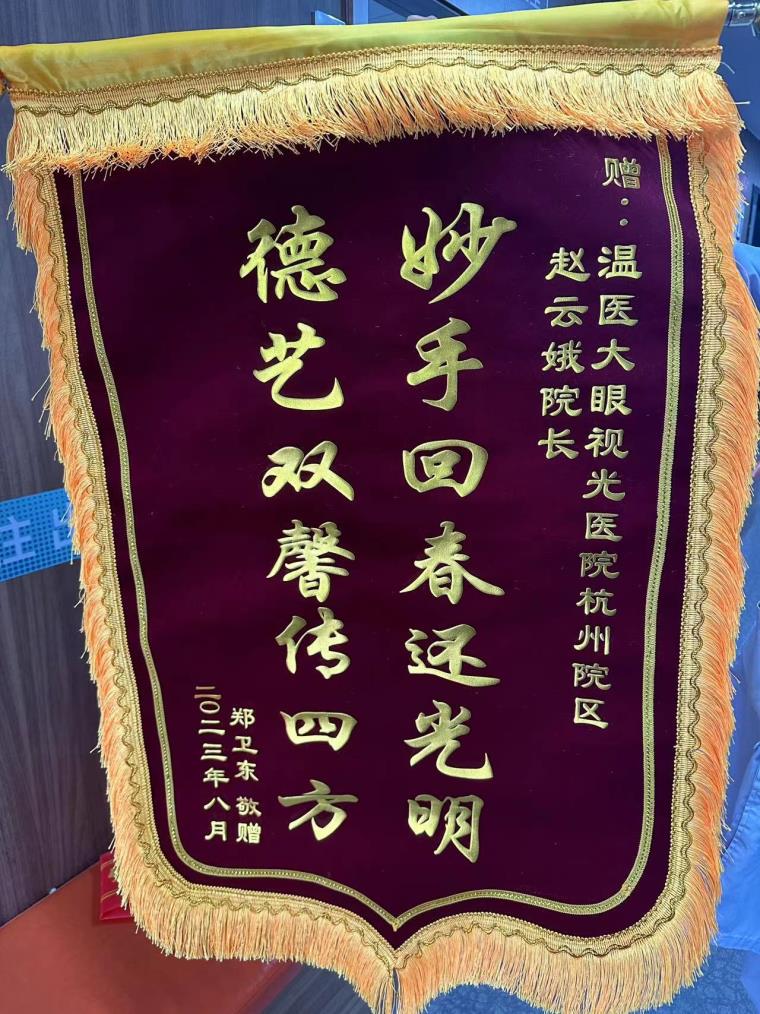 赠：温医大眼视光医院杭州院区
赵云娥院长
妙手回春还光明
德艺双馨传四方
郑卫东 敬赠
二〇二三年八月